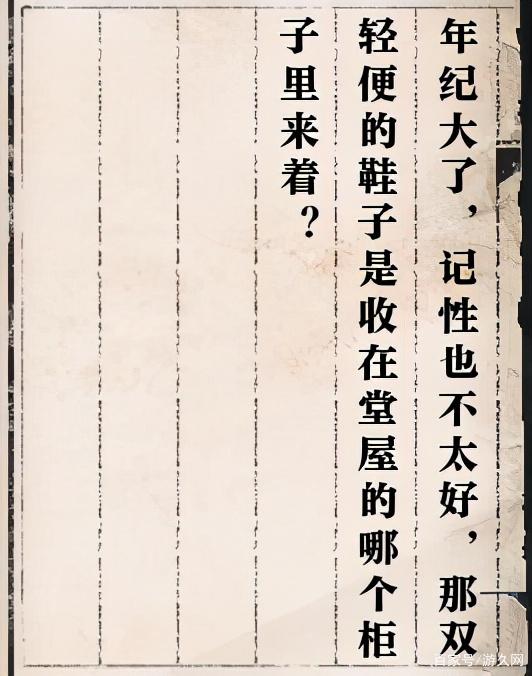 年纪大了，记性也不太好，那双
轻便的鞋子是收在堂屋的哪个柜
子里来着？
百家号/游久网